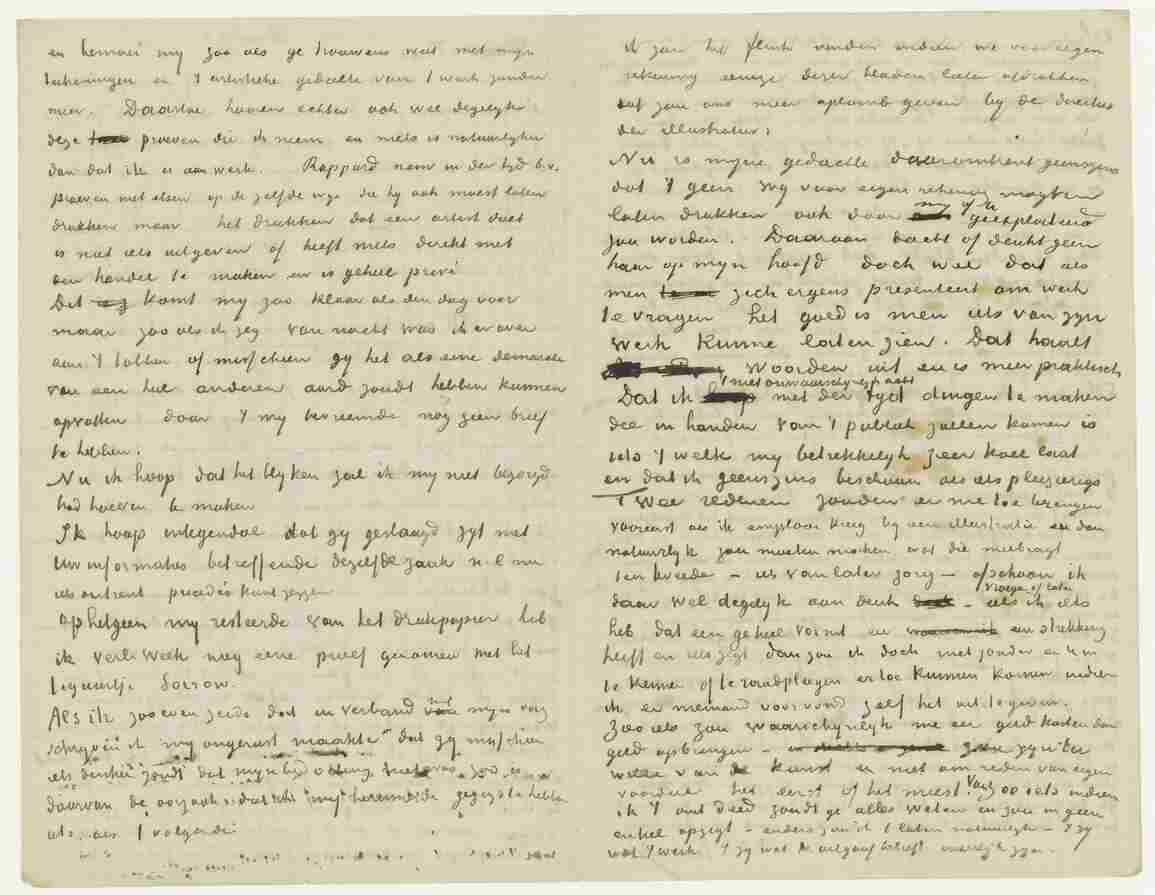 en bemoei my zoo als ge trouwens wat met myn
teekeningen en 't artistieke gedeelte van 't werk zonder
meer. Daartoe hooren echter ook wel degelyk
deze proeven die ik neem en niets is natuurlyker
dan dat ik er aan werk. Rappard nam in der tyd b.v.
proeven met etsen op de zelfde wyze die hy ook moest laten
drukken maar het drukken dat een artist doet
is niet iets uitgeven of heeft niets direkt met
den handel te maken en is geheel privé
Dit komt my zoo klaar als den dag voor
maar zoo als ik zeg van nacht was ik er over
aan 't tobben of misschien gy het als eene demarche
van een heel anderen aard zoudt hebben kunnen
opvatten daar 't my bevreemdde nog geen brief
te hebben.
Nu ik hoop dat het blyken zal ik my niet bezorgd
had hoeven te maken
Ik hoop integendeel dat gy geslaagd zyt met
Uw informaties betreffende dezelfde zaak n.l. my
iets omtrent procédés kunt zeggen
Op hetgeen my resteerde van het drukpapier heb
ik verl. week nog eene proef genomen met het
figuurtje Sorrow.
Als ik zoo even zeide dat in verband met myn vorig
schryven ik my ongerust maakte dat gy misschien
iets denken zoudt dat
daarvan de oorzaak
iets als 't volgende
ik zou het flink vinden indien we voor eigen
rekening eenige dezer bladen laten afdrukken
dat zou ons meer aplomb geven by de directies
der illustraties.
Nu is myne gedachte daaromtrent geenszins
dat 't geen wy voor eigen rekening mogten
laten drukken ook door my of U geexploiteerd
zou worden. Daaraan dacht of denkt geen
haar op myn hoofd doch wel dat als
men zich ergens presenteert om werk
te vragen het goed is men iets van zyn
werk kunne laten zien. Dat haalt
woorden uit en is meer praktisch
Dat ik 't niet onwaarschynlyk acht met der tyd dingen te maken
die in handen van 't publiek zullen komen is
iets 't welk my betrekkelyk zeer koel laat
en dat ik geenszins beschouw als iets pleizierigs
Twee redenen zouden er me toe brengen
vooreerst als ik emplooi kreeg by een illustratie en dan
natuurlyk zou moeten maken wat die meebragt
ten tweede – iets van later zorg – ofschoon ik
daar wel degelyk aan denk – als ik vroeg of later iets
heb dat een geheel vormt en een strekking
heeft en iets zegt dan zou ik doch niet zonder U er in
te kennen of te raadplegen er toe kunnen komen indien
ik er niemand voor vond zelf het uit te geven.
Zoo iets zou waarschynlyk me eer geld kosten dan
geld opbrengen – zou zyn ter
wille van de kunst en niet om reden van eigen
voordeel het eerst of het meest Van zoo iets indien
ik 't ooit deed zoudt ge alles weten en zou in geen
enkel opzigt – anders zou ik 't laten natuurlyk – 't zy
wat 't werk 't zy wat de uitgaaf betreft